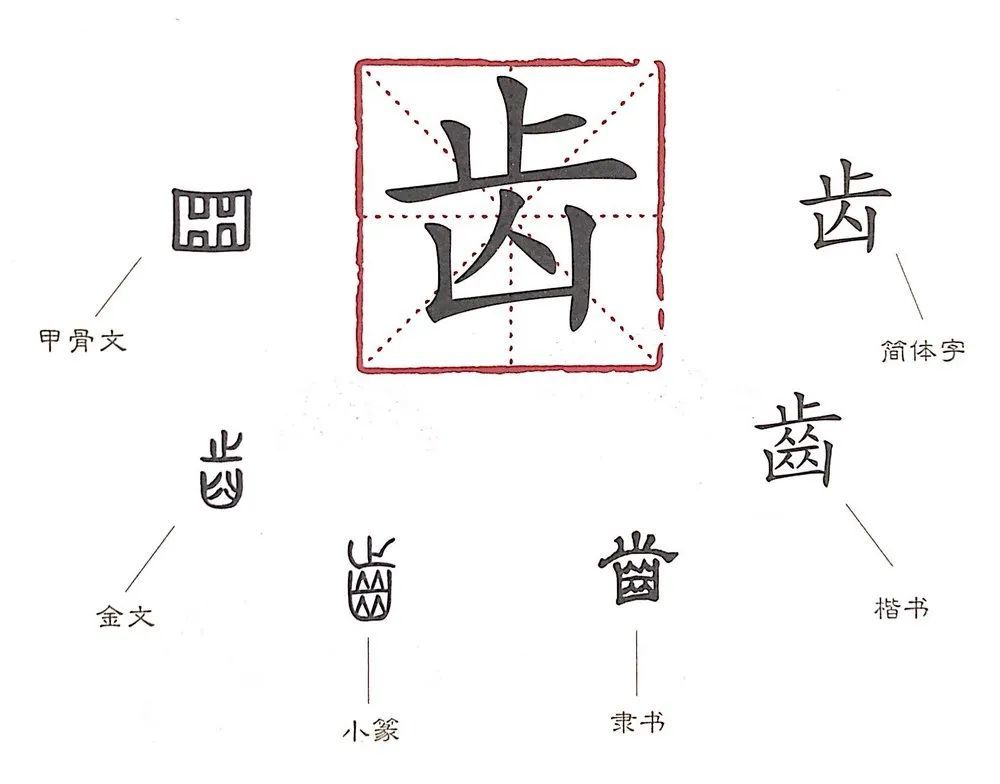 齿
甲骨文
金文
小篆
隶书
齒
楷书
齿
简体字